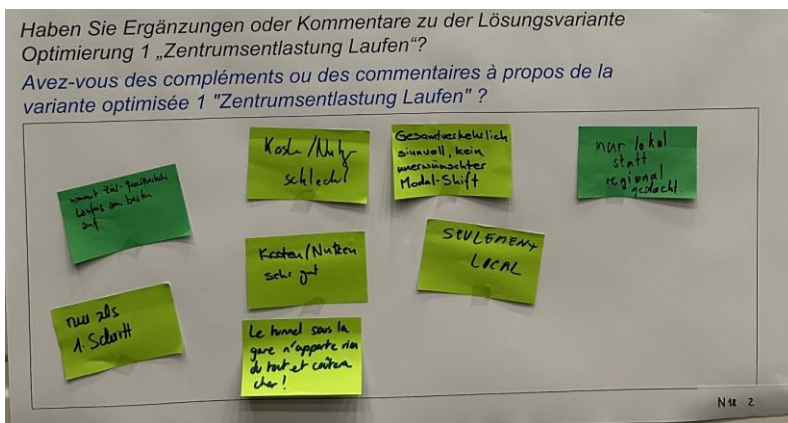 Haben Sie Ergänzungen oder Kommentare zu der Lösungsvariante
Optimierung 1 „Zentrumsentlastung Laufen“?
Avez-vous des compléments ou des commentaires à propos de la
variante optimisée 1 "Zentrumsentlastung Laufen" ?
nimmt Ziel-
Laufens am besten
auf
Kosten/Nutz
schlecht
Gesamtverkehrlich
sinnvoll, kein
unerwünschter
Modal-Shift
nur lokal
statt
regional
gedacht
Kosten/Nutzen
sehr gut
SEULEMENT
LOCAL
nur als
1. Schritt
Le tunnel sous la
gare n'apporte rien
du tout et coûtera
cher !
N18 2